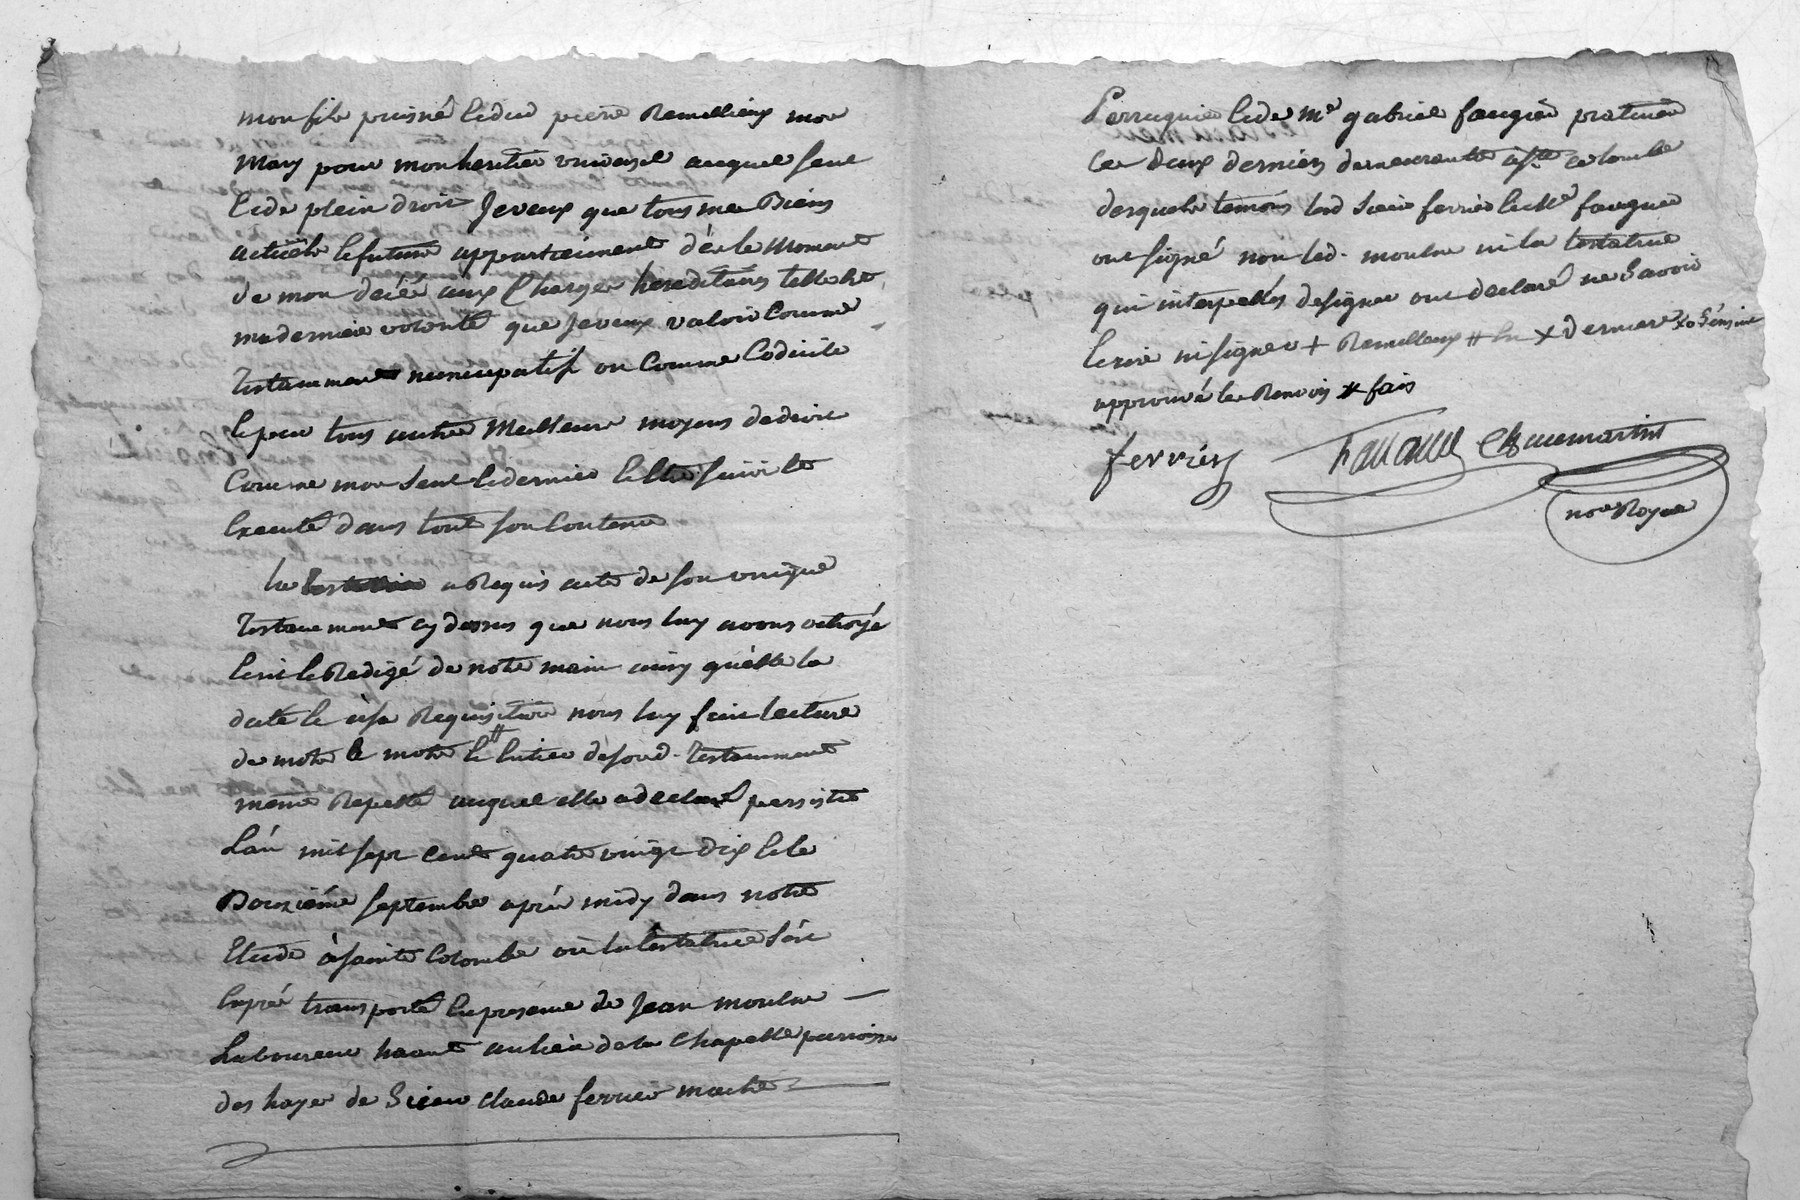 mon fils puisné & dud pierre Remillieux mon
Mary pour mon heritier universel auquel seul
& de plein droit Jeveux que tous mes Biens
actuels & futurs appartiennent dés le Moment
de mon décés aux Charges hereditaires telle est
maderniere volonté que Jeveux valoir Comme
Testamment nuncupatif ou Comme Codicile
& par tous autres Meilleurs moyens dedroit
Comme mon Seul & dernier & Etre suivi &
Executé dans tout son Contenu
la testatrice a Requis acte de son unique
Testamment cy dessus que nous luy avons octroyé
Ecrit & Redigé de notre main ainsy qu'elle la
dicté & àsa Requisition nous luy fait lecture
de mots à mots # & Entier desond. Testamment
même Repetté auquel elle adeclaré persister
L'an mil sept Cent quatre vingt dix & le
Douziéme septembre aprés midy dans notre
Etude à sainte Colombe où la testatrice s'est
Exprés transporté Enpresence de Jean moulne
Laboureur haant aulieu dela Chapelle parroisse
des hayes de Sieur Claude ferrier maitre
Perruquier & de Me gabriel faugier praticien
Ces deux derniers demeurants à Ste colombe
desquels temoins led Sieur ferrier & Me faugier
ont signé non led. moulne ni la testatrice
qui interpellés designer ont declaré ne Savoir
Ecrire ni signer + Remillieux # X derniere
approuvé les Renvois # fais
ferrier
Chaumartin
nore Royal